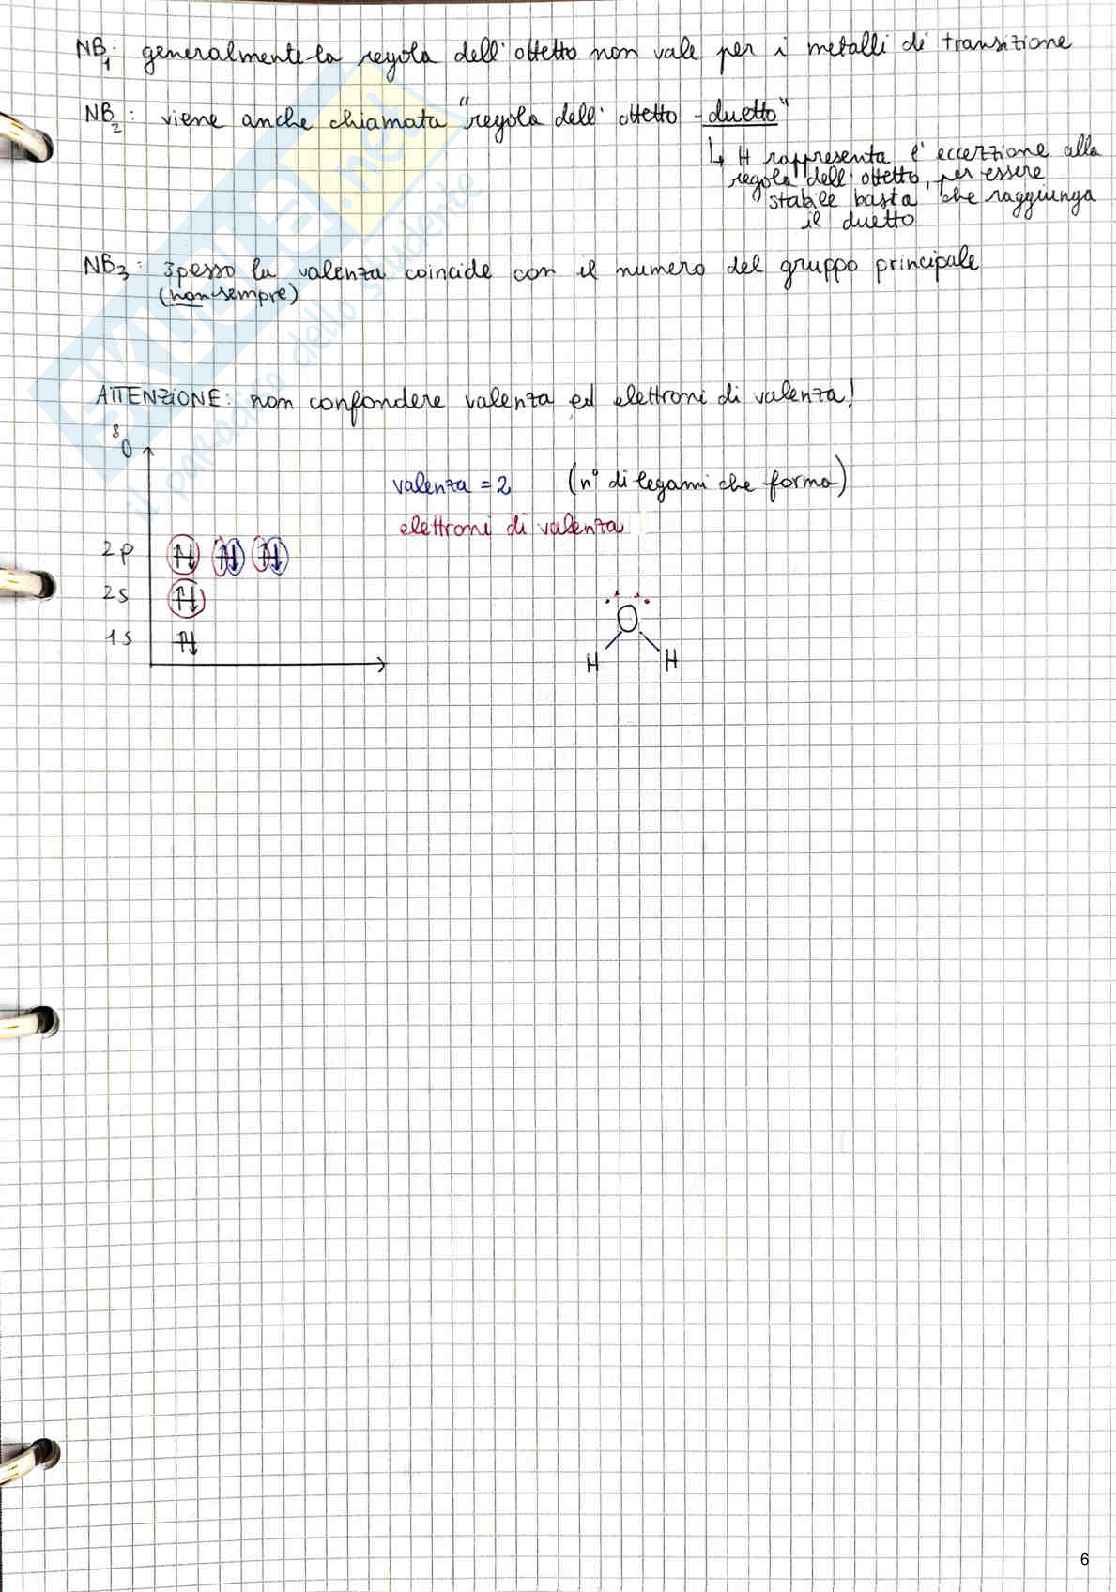 NB1: generalmente la regola dell'ottetto non vale per i metalli di transizione
NB2: viene anche chiamata "regola dell'ottetto - duetto"
↳ H rappresenta l'eccezzione alla
regola dell'ottetto, per essere
stabile basta che raggiunga
il duetto
NB3: spesso la valenza coincide con il numero del gruppo principale
(non sempre)
ATTENZIONE: non confondere valenza ed elettroni di valenza!
8O
valenza = 2 (n° di legami che forma)
elettroni di valenza
2p
2s
1s
O
H H
SKUOLA.net
il paradiso dello studente
6